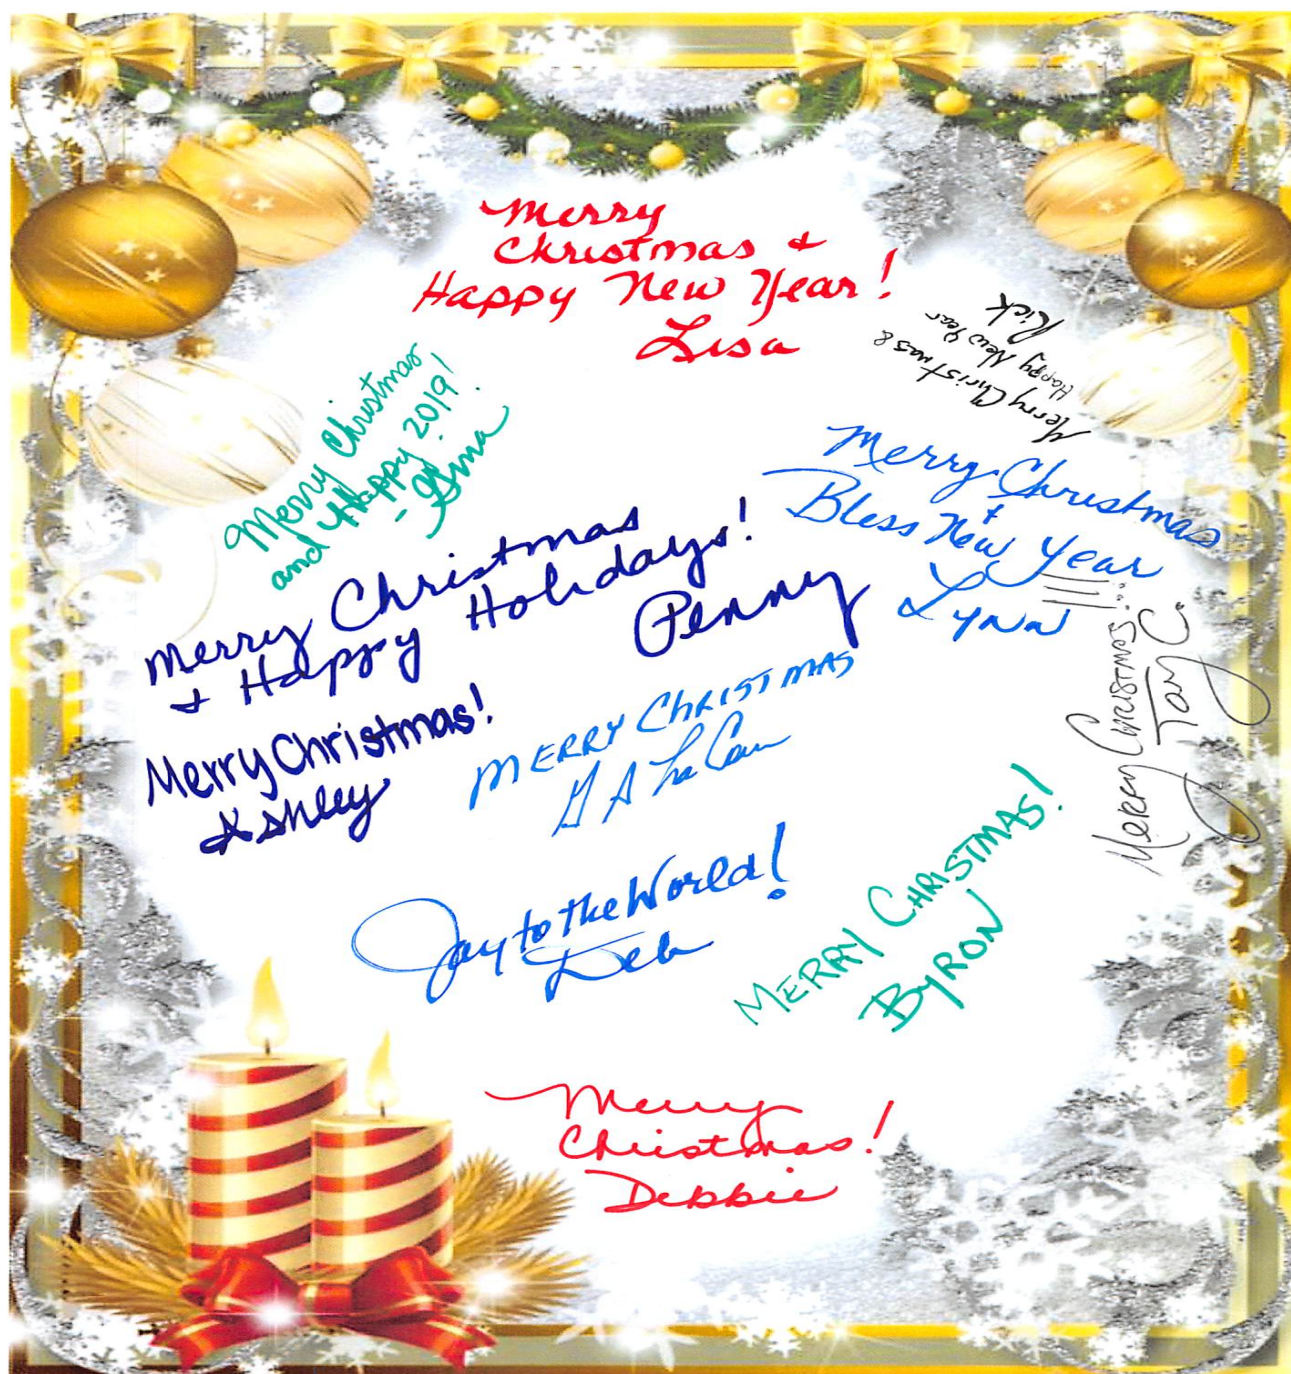 Merry
Christmas &
Happy New Year!
Lisa
Merry Christmas &
Happy New Year
Rick
Merry Christmas
and Happy 2019!
- Gina
Merry Christmas
+
Bless New Year
Lynn
Merry Christmas
& Happy Holidays!
Penny
Merry Christmas!
Ashley
MERRY CHRISTMAS
MERRY CHRISTMAS!!!...
Tay C.
Joy to the World!
Deb
MERRY CHRISTMAS!
BYRON
Merry
Christmas!
Debbie